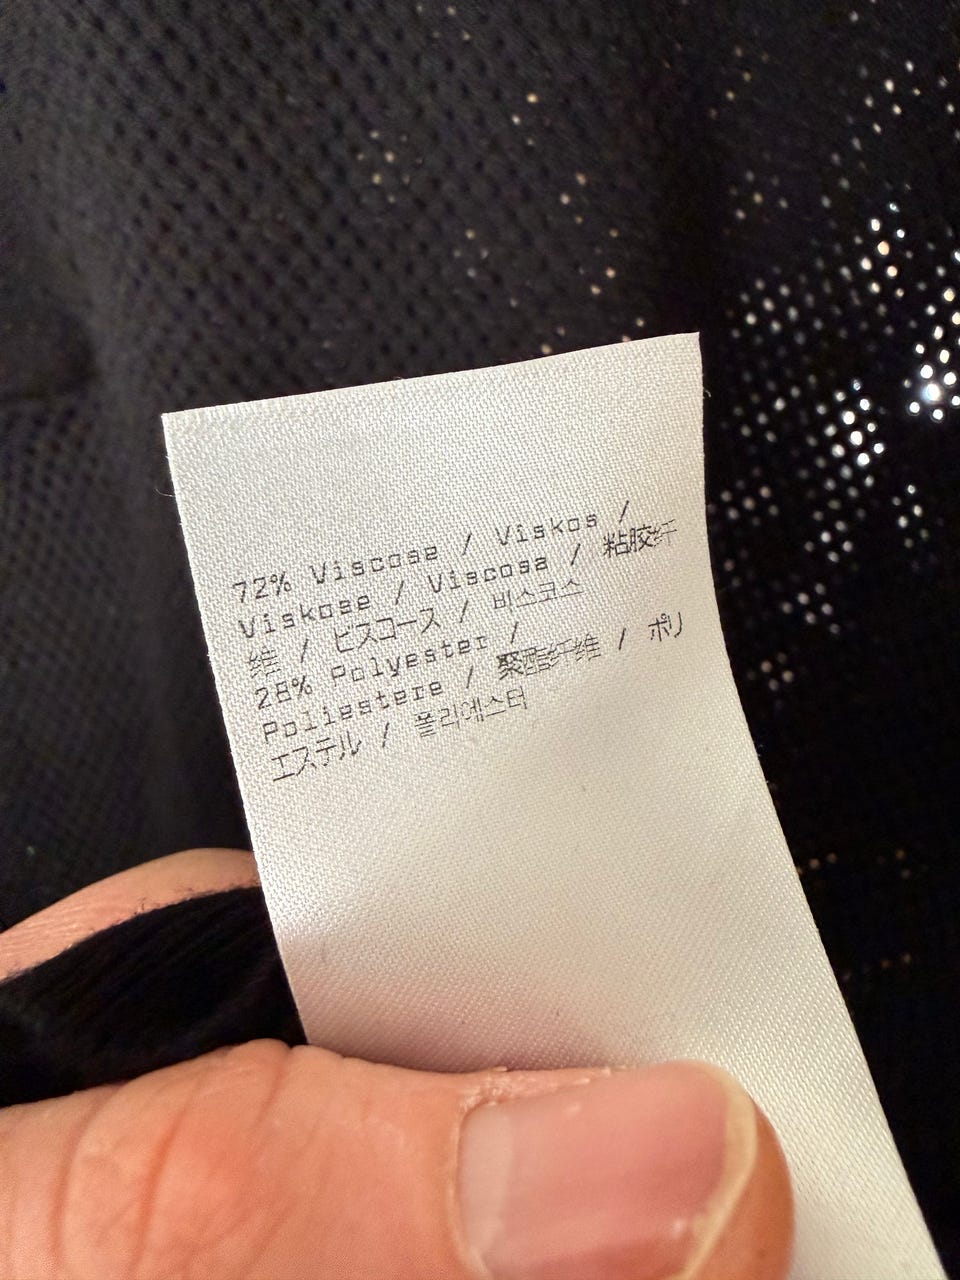 72% Viscose / Viskos /
Viskose / Viscosa / 粘胶纤
维 / ビスコース / 비스코스
28% Polyester /
Poliestere / 聚酯纤维 / ポリ
エステル / 폴리에스터